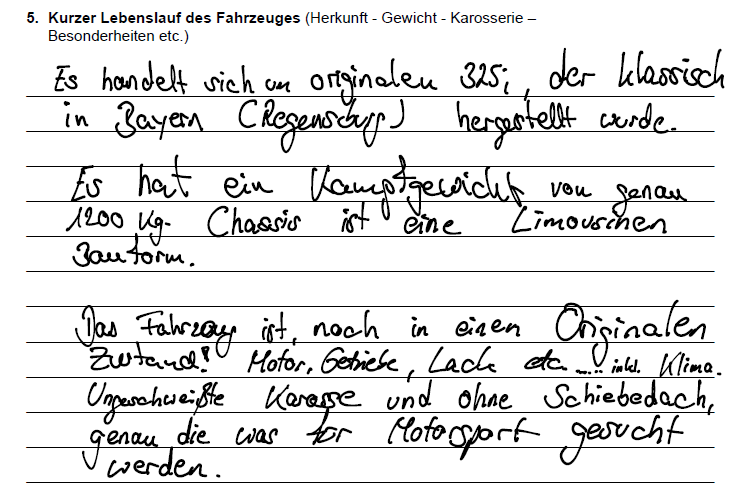 5. Kurzer Lebenslauf des Fahrzeuges (Herkunft - Gewicht - Karosserie –
Besonderheiten etc.)
Es handelt sich um originalen 325i, der klassisch
in Bayern (Regensburg) hergestellt wurde.
Es hat ein Kampfgewicht von genau
1200 Kg. Chassis ist eine Limousinen
Bauform.
Das Fahrzeug ist, noch in einen Originalen
Zustand! Motor, Getriebe, Lack etc..... inkl. Klima.
Ungeschweißte Karosse und ohne Schiebedach,
genau die was für Motorsport gesucht
werden.